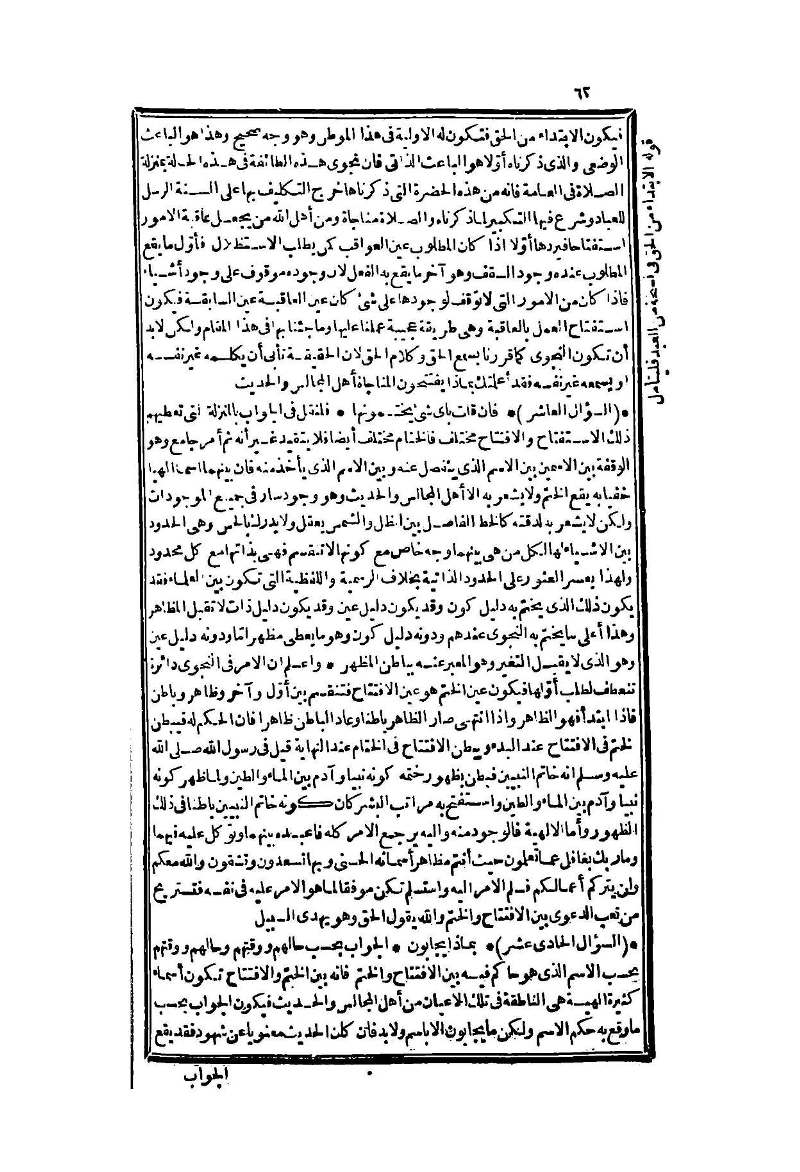 ٦٢
فيكون الابتداء من الحق فتكون له الاولية فى هذا الموطن وهو وجه صحيح وهذا هو الباعث
الوضعى والذى ذكرناه أولا هو الباعث الذاتى فان نجوى هذه الطائفة فى هذه الحالة بمنزلة
الصلاة فى العامة فانه من هذه الحضرة التى ذكرناها خرج التكليف بها على السنة الرسل
للعباد وشرع فيها التكبير لما ذكرناه والصلاة مناجاة ومن أهل الله من يجعل عاقبة الامور
استفتاحا فيردها أولا اذا كان المطلوب عين العواقب كمن يطلب الاستظلال فأول ما يقع
المطلوب عنده وجود السقف وهو آخر ما يقع به الفعل لان وجوده موقوف على وجود أشياء
فاذا كان من الامور التى لا توقف لوجودها على شئ كان عين العاقبة عين السابقة فيكون
استفتاح العمل بالعاقبة وهى طريقة عجيبة عملنا عليها وما جئنا بها فى هذا المقام ولكن لابد
أن تكون النجوى كما قررنا بسمع الحق وكلام الحق لان الحقيقة تأبى أن يكلمه غير نفسه
او يسمعه غير نفسه فقد أعلمتك بماذا يفتتحون المناجاة أهل المجالس والحديث
*(السؤال العاشر)* فان قلت باى شئ يختمونها * فلنقل فى الجواب بالمنزلة التى تعطيهم
ذلك الاستفتاح والافتتاح مختلف فالختام مختلف أيضا فلا يتقيد غير أنه ثم أمر جامع وهو
الوقفة بين الاسمين بين الاسم الذى ينفصل عنه وبين الاسم الذى يأخذ منه فان بينهما اسما الهيا
خفيا به يقع الختم ولا يشعر به الا أهل المجالس والحديث وهو وجود سار فى جميع الموجودات
ولكن لا يشعر به لدقته كالخط الفاصل بين الظل والشمس يعقل ولا يدرك بالحس وهى الحدود
بين الاشياء لها لكل من هى بينهما وجه خاص مع كونها لا تنقسم فهى بذاتها مع كل محدود
ولهذا يعسر العثور على الحدود الذاتية بخلاف الرسمية واللفظية التى تكون بين العلماء فقد
يكون ذلك الذى يختم به دليل كون وقد يكون دليل عين وقد يكون دليل ذات لا تقبل المظاهر
وهذا أعلى ما يختم به النجوى عندهم ودونه دليل كون وهو ما يعطى مظهرا ما ودونه دليل عين
وهو الذى لا يقبل التغير وهو المعبر عنه بباطن المظهر * واعلم ان الامر فى النجوى دائرة
تنعطف لطلب أولها فيكون عين الختم هو عين الافتتاح فتنقسم بين أول وآخر وظاهر وباطن
فاذا ابتدأ فهو الظاهر واذا انتهى صار الظاهر باطنا وعاد الباطن ظاهرا فان الحكم له فيبطن
لختم فى الافتتاح عند البدء ويبطن الافتتاح فى الختام عند النهاية قيل فى رسول الله صلى الله
عليه وسلم انه خاتم النبيين فبطن بظهور ختمه كونه نبيا وآدم بين الماء والطين ولما ظهر كونه
نبيا وآدم بين الماء والطين واستفتح به مراتب البشر كان كونه خاتم النبيين باطنا فى ذلك
الظهور وأما الالهية فالوجود منه واليه يرجع الامر كله فاعبده بينهما وتوكل عليه فيهما
وما ربك بغافل عما تعملون حيث أنتم مظاهر أسمائه الحسنى وبها تسعدون وتشقون والله معكم
ولن يتركم أعمالكم فسلم الامر اليه واستسلم تكن موفقا لما هو الامر عليه فى نفسه فتستريح
من تعب الدعوى بين الافتتاح والختم والله يقول الحق وهو يهدى السبيل
*(السؤال الحادى عشر)* بماذا يجابون * الجواب بحسب حالهم ووقتهم وحالهم ووقتهم
بحسب الاسم الذى هو حاكم فيه بين الافتتاح والختم فانه بين الختم والافتتاح تكون أسماء
كثيرة الهية هى الناطقة فى تلك الاعيان من أهل المجالس والحديث فيكون الجواب بحسب
ما وقع به حكم الاسم ولكن ما يجابون الا باسم ولابد فان كان الحديث معنويا عن شهود فقد يقع
الجواب
قوله الابتداء من الحق فى نسخة من العبد فليتأمل